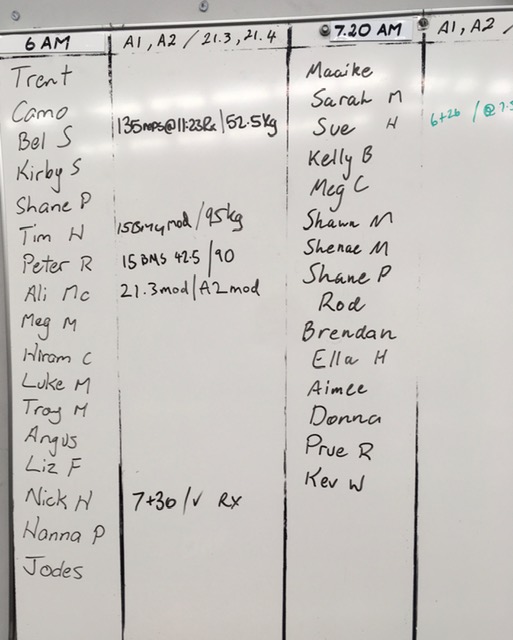 6 AM
A1, A2 / 21.3, 21.4
Trent
Camo
Bel S 135 reps @ 11:23 Rx / 52.5kg
Kirby S
Shane P
Tim H mod / 95kg
Peter R 15 BMS 42.5 / 90
Ali Mc 21.3 mod / A2 mod
Meg M
Hiram C
Luke M
Troy M
Angus
Liz F
Nick H 7+30 / √ RX
Hanna P
Jodes
7.20 AM
A1, A2 /
Maaike
Sarah M
Sue H 6+26 / @ 7.
Kelly B
Meg C
Shawn M
Shenae M
Shane P
Rod
Brendan
Ella H
Aimee
Donna
Prue R
Kev W